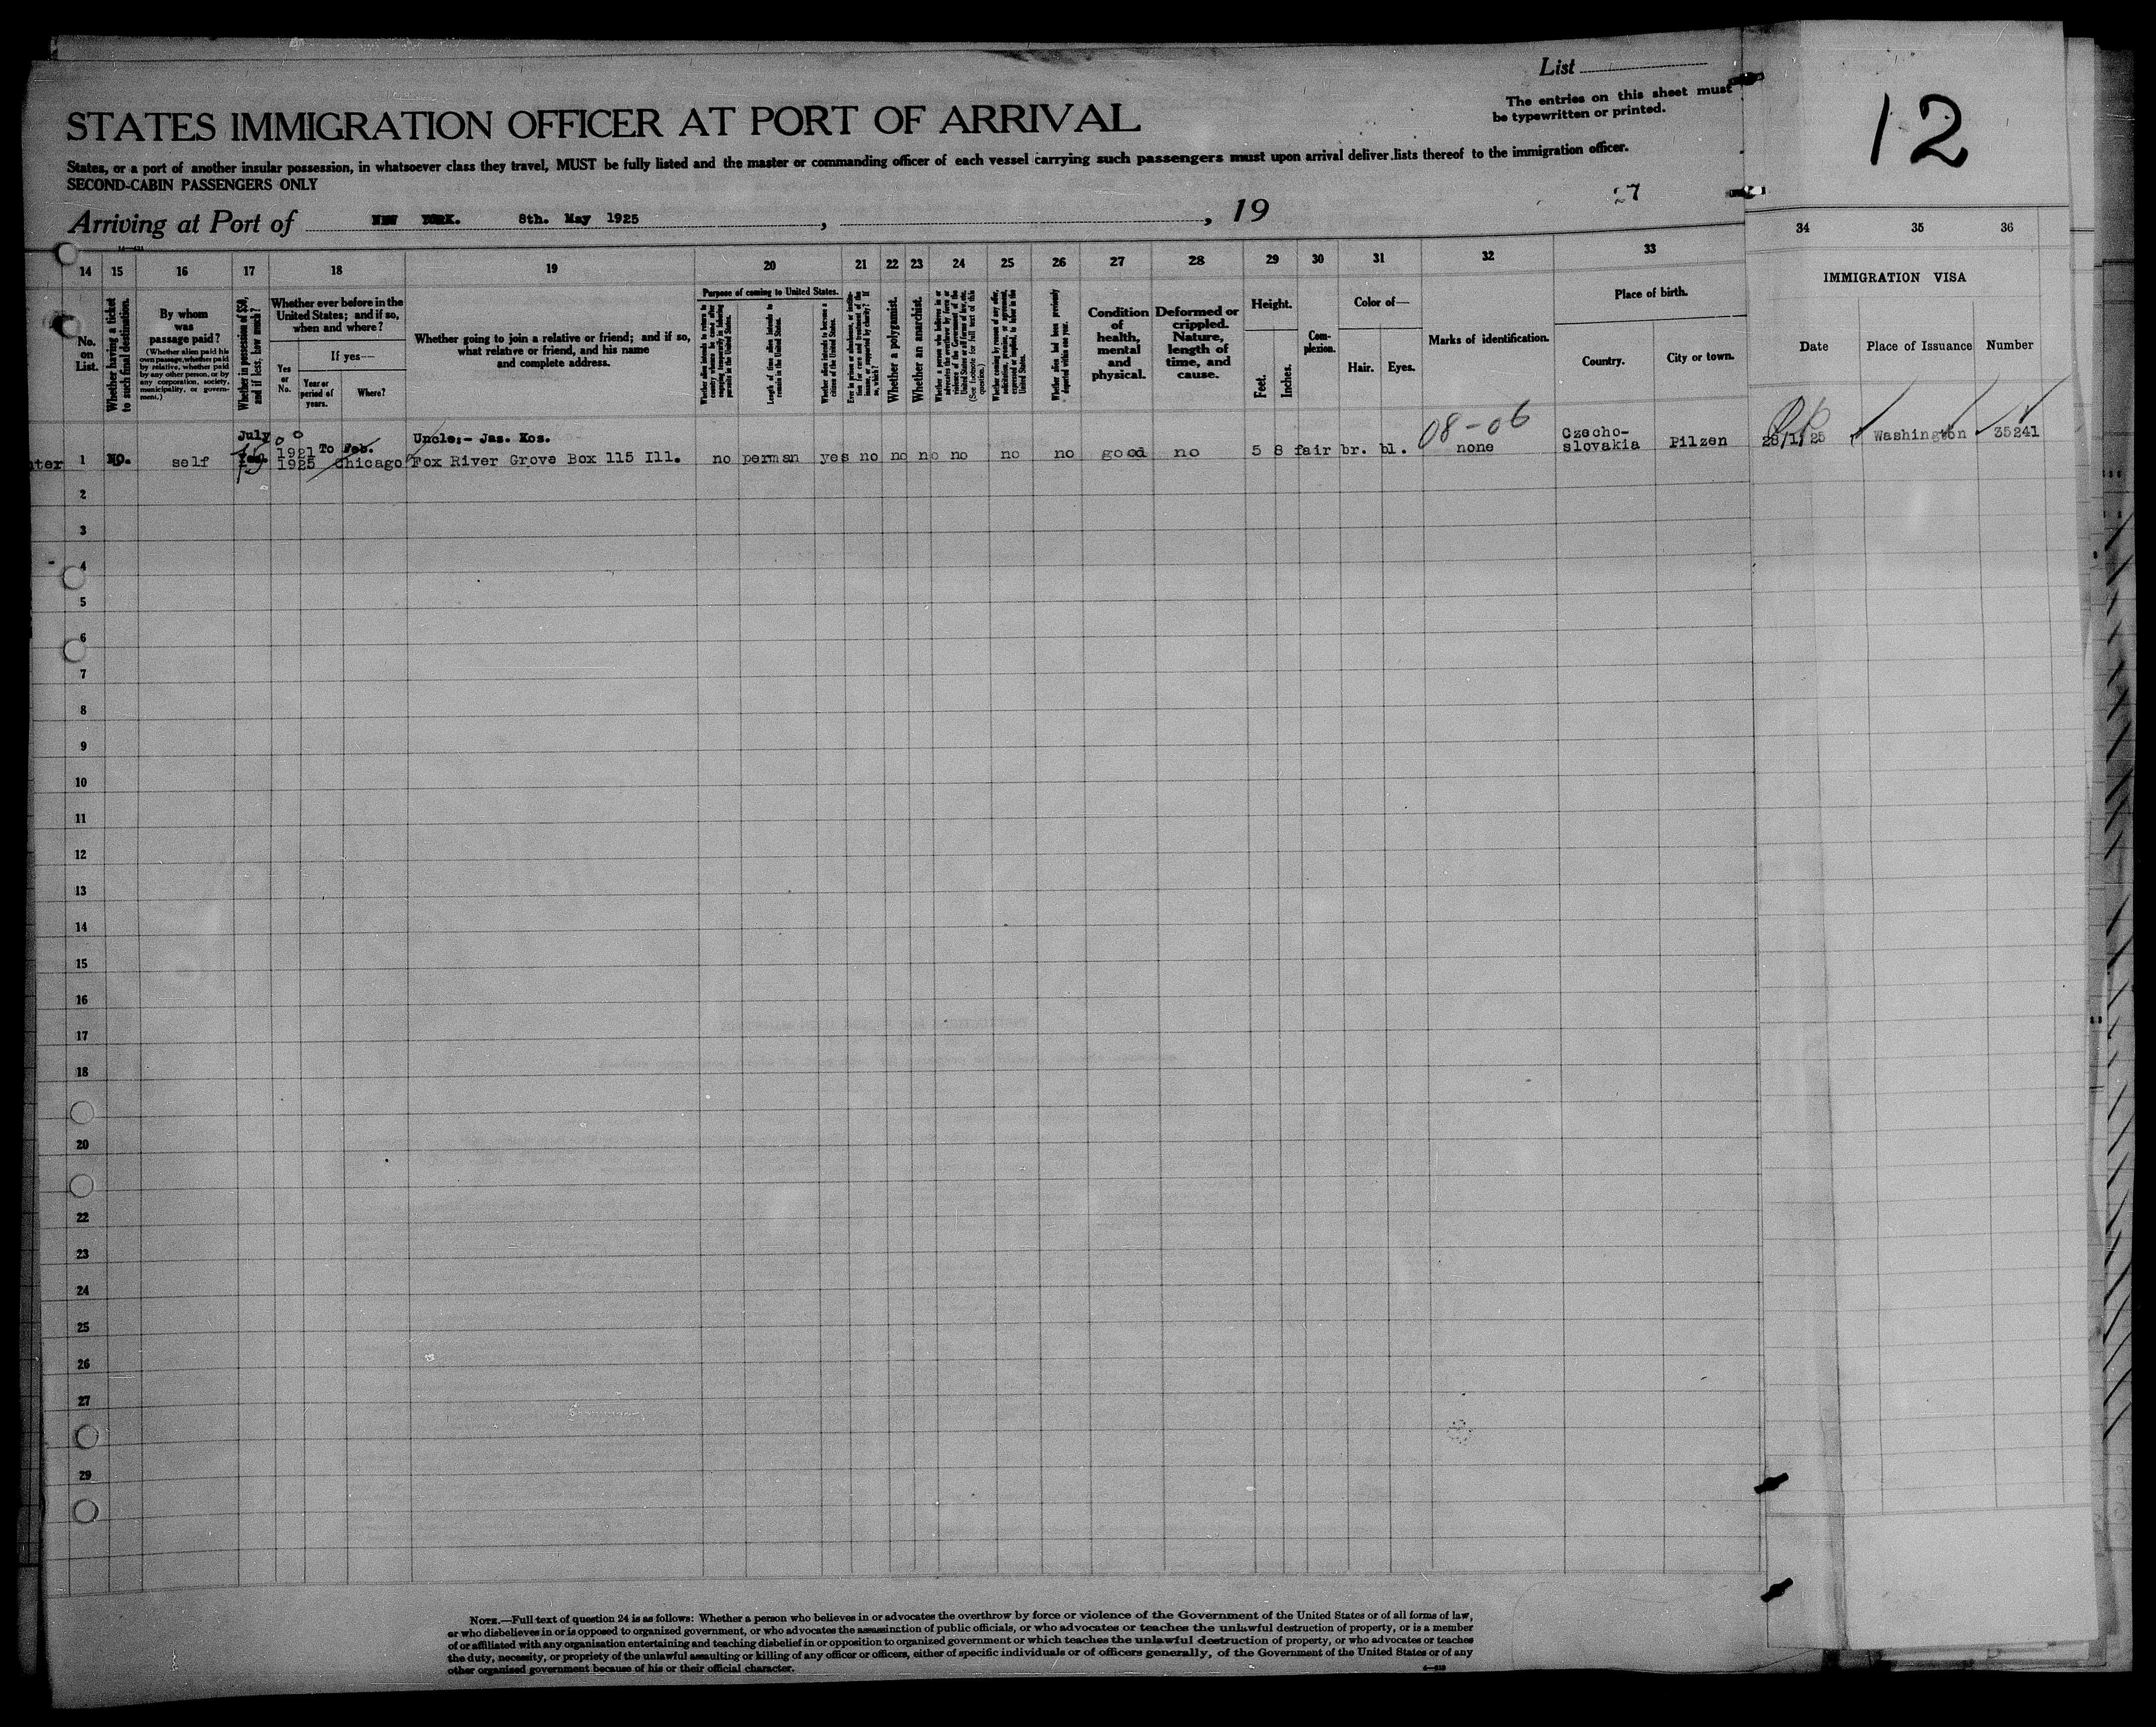 List
The entries on this sheet must
be typewritten or printed.
12
STATES IMMIGRATION OFFICER AT PORT OF ARRIVAL
States, or a port of another insular possession, in whatsoever class they travel, MUST be fully listed and the master or commanding officer of each vessel carrying such passengers must upon arrival deliver lists thereof to the immigration officer.
SECOND-CABIN PASSENGERS ONLY
27
Arriving at Port of NEW YORK. 8th. May 1925 , 19
14 15 16 17 18 19 20 21 22 23 24 25 26 27 28 29 30 31 32 33 34 35 36
No. on List.
Whether having a ticket to such final destination.
By whom was passage paid?
(Whether alien paid his own passage, whether paid by relative, whether paid by any other person, or by any corporation, society, municipality, or government.)
Whether in possession of $50, and if less, how much?
Whether ever before in the United States; and if so, when and where?
Yes or No.
If yes—
Year or period of years.
Where?
Whether going to join a relative or friend; and if so, what relative or friend, and his name and complete address.
Purpose of coming to United States.
Length of time alien intends to remain in the United States.
Whether alien intends to become a citizen of the United States.
Whether a polygamist.
Whether an anarchist.
Whether alien had been previously deported within one year.
Condition of health, mental and physical.
Deformed or crippled. Nature, length of time, and cause.
Height.
Feet.
Inches.
Complexion.
Color of—
Hair.
Eyes.
Marks of identification.
Place of birth.
Country.
City or town.
IMMIGRATION VISA
Date
Place of Issuance
Number
08-06
July 1921 To Feb. Uncle:- Jas. Kos. Czecho-
1 NO. self 1925 Chicago Fox River Grove Box 115 Ill. no perman yes no no no no no no good no 5 8 fair br. bl. none slovakia Pilzen 28/1/25 Washington 35241
2
3
4
5
6
7
8
9
10
11
12
13
14
15
16
17
18
20
22
23
24
25
26
27
29
NOTE.—Full text of question 24 is as follows: Whether a person who believes in or advocates the overthrow by force or violence of the Government of the United States or of all forms of law,
or who disbelieves in or is opposed to organized government, or who advocates the assassination of public officials, or who advocates or teaches the unlawful destruction of property, or is a member
of or affiliated with any organization entertaining and teaching disbelief in or opposition to organized government or which teaches the unlawful destruction of property, or who advocates or teaches
the duty, necessity, or propriety of the unlawful assaulting or killing of any officer or officers, either of specific individuals or of officers generally, of the Government of the United States or of any
other organized government because of his or their official character.